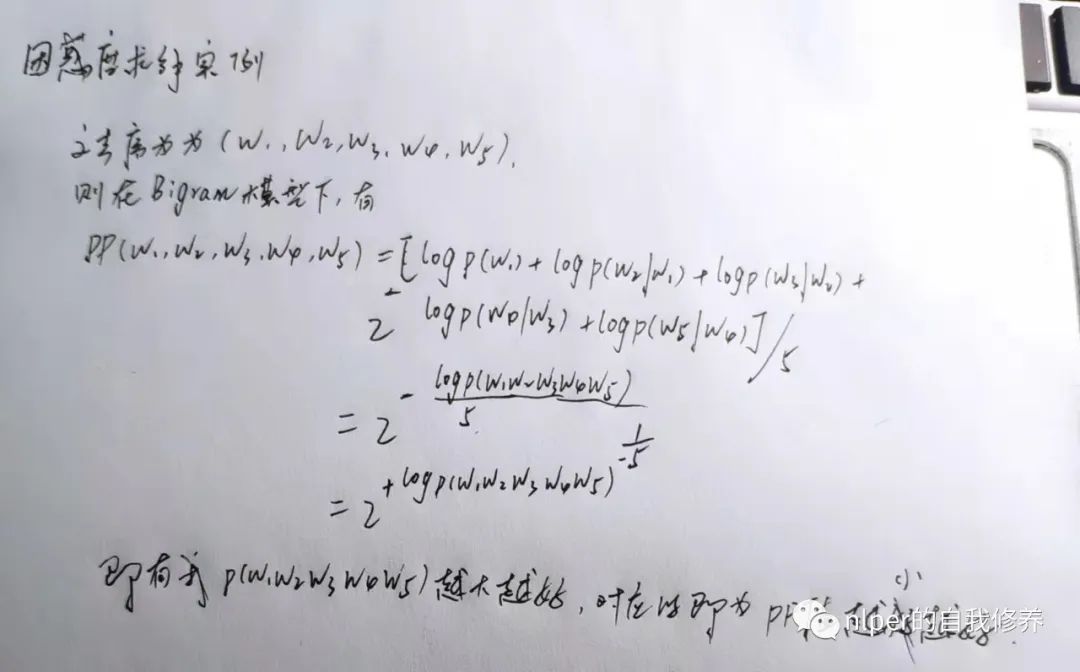 困惑度求解实例
文本序列为(w1, w2, w3, w4, w5),
则在Bigram模型下,有
PP(w1, w2, w3, w4, w5) = 2^-[logp(w1) + logp(w2|w1) + logp(w3|w2) +
logp(w4|w3) + logp(w5|w4)]/5
= 2^-logp(w1w2w3w4w5)/5
= 2^+logp(w1w2w3w4w5)^1/-5
即有 p(w1w2w3w4w5)越大越好,对应 即为 PP 越小越好
nlper的自我修养